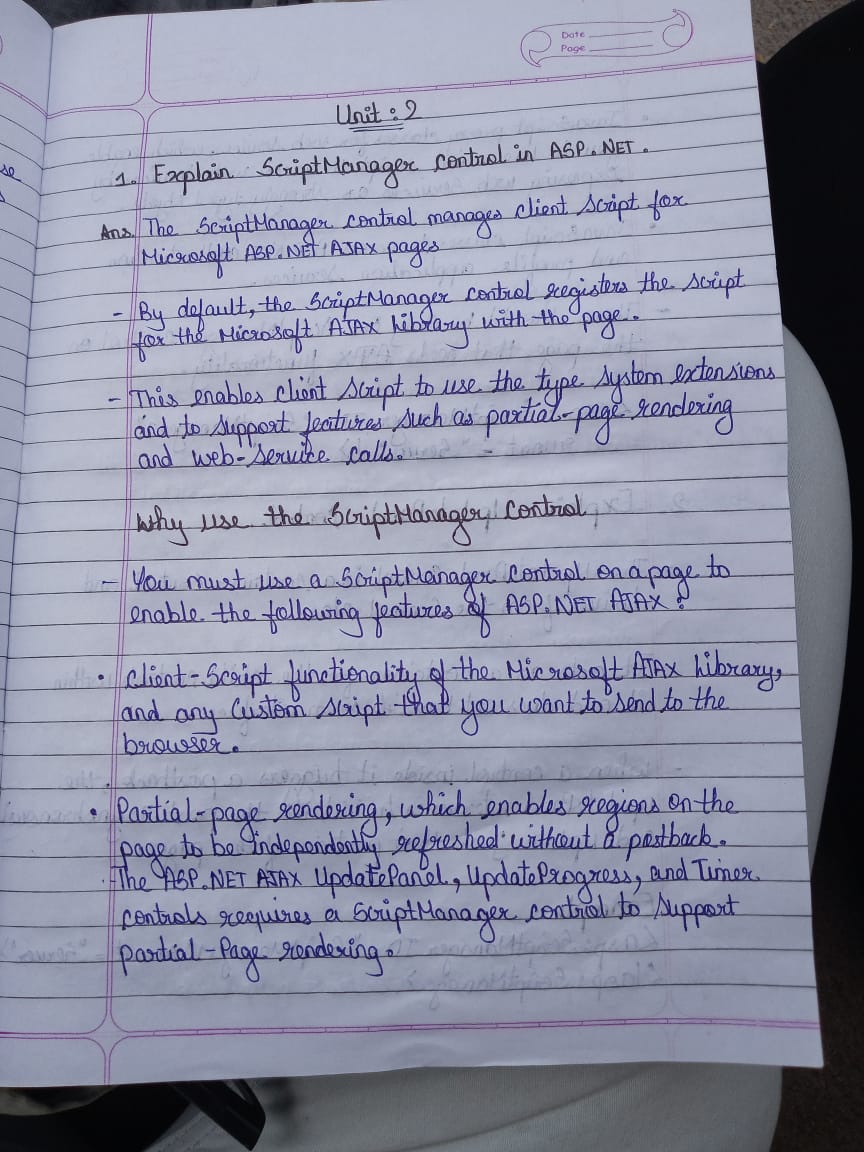 Date
Page
Unit : 2
1. Explain ScriptManager control in ASP.NET.
Ans. The ScriptManager control manages client script for
Microsoft ASP.NET AJAX pages
- By default, the ScriptManager control registers the script
for the Microsoft AJAX Library with the page.
- This enables client script to use the type system extensions
and to support features such as partial-page rendering
and web-service calls.
Why use the ScriptManager control
- You must use a ScriptManager control on a page to
enable the following features of ASP.NET AJAX:
• Client-Script functionality of the Microsoft AJAX Library,
and any Custom script that you want to send to the
browser.
• Partial-page rendering, which enables regions on the
page to be independently refreshed without a postback.
The ASP.NET AJAX UpdatePanel, UpdateProgress, and Timer
controls requires a ScriptManager control to support
partial-Page rendering.